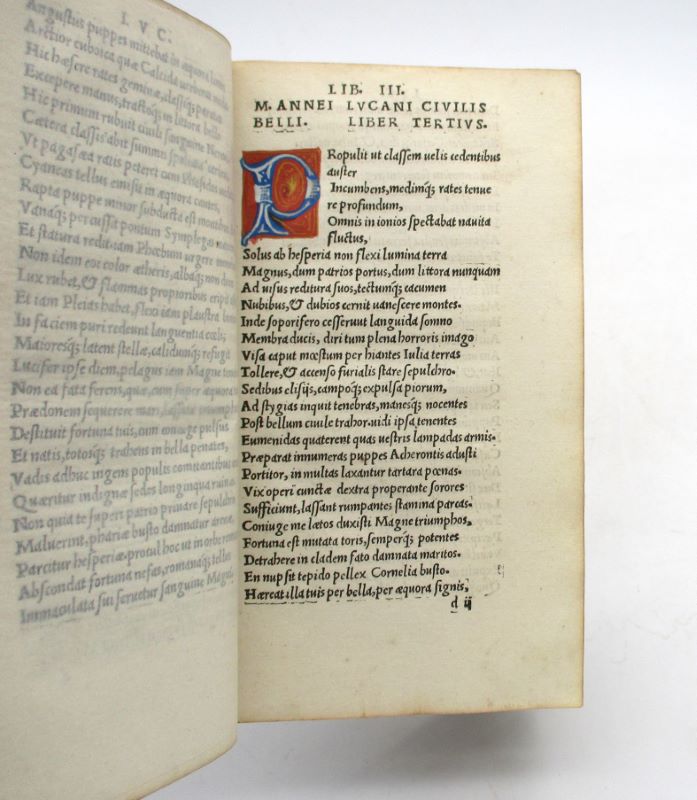 LVC.
Angustus puppes mittebat in æquora limes,
Arctior euboica quæ Calcida
Hic hæsere rates geminæ, classisq; paratæ
Excepere manus, tractoq; in littora bello
Hic primum rubuit ciuili sanguine
Cætera classis abit summis spoliata
Vt pagasæa ratis peteret cum Phasidos undas
Cyaneas tellus emisit in æquora cautes,
Rapta puppe minor subducta est montibus
Vanaq; percussit pontum Symplegas
Et statura redit. iam Phœbum urgere
Non idem eoi color ætheris, albaq; non dum
Lux rubet, & flammas propioribus eripit
Et iam Pleias habet, flexi iam plaustra
In faciem puri redeunt languentia cœli;
Maioresq; latent stellæ, calidumq; refugit
Lucifer ipse diem, pelagus iam Magne
Non ea fata ferens, quæ cum super æquora
Prædonem sequerere mari, lassata triumphis
Destituit fortuna tuis, cum coniuge pulsus
Et natis, totosq; trahens in bella penates,
Vadis adhuc ingens populis comitantibus
Quæritur indignæ sedes longinqua ruinæ.
Non quia te superi patrio priuare sepulchro
Maluerint, phariæ busto damnatur arenæ,
Parcitur hesperiæ, procul hoc ut in orbe
Abscondat fortuna nefas, romanaq; tellus
Immaculata sui seruetur sanguine Magni.
LIB. III.
M. ANNEI LVCANI CIVILIS
BELLI. LIBER TERTIVS.
PRopulit ut classem uelis cedentibus
auster
Incumbens, mediumq; rates tenue
re profundum,
Omnis in ionios spectabat nauita
fluctus,
Solus ab hesperia non flexi lumina terra
Magnus, dum patrios portus, dum littora nunquam
Ad uisus reditura suos, tectumq; cacumen
Nubibus, & dubios cernit uanescere montes.
Inde soporifero cesserunt languida somno
Membra ducis, diri tum plena horroris imago
Visa caput mœstum per hiantes Iulia terras
Tollere, & accenso furialis stare sepulchro.
Sedibus elisijs, campoq; expulsa piorum,
Ad stygias inquit tenebras, manesq; nocentes
Post bellum ciuile trahor. uidi ipsa tenentes
Eumenidas quaterent quas uestris lampadas armis.
Præparat innumeras puppes Acherontis adusti
Portitor, in multas laxantur tartara pœnas.
Vix operi cunctæ dextra properante sorores
Sufficiunt, lassant rumpantes stamina parcas.
Coniuge me lætos duxisti Magne triumphos,
Fortuna est mutata toris, semperq; potentes
Detrahere in cladem fato damnata maritos.
En nupsit tepido pellex Cornelia busto.
Hæreat illa tuis per bella, per æquora signis,
d ii